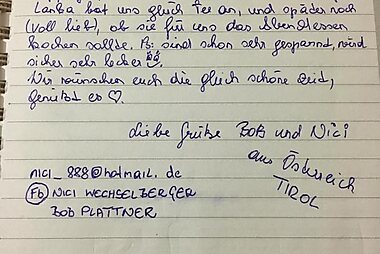 Lanka hat uns gleich Tee an, und später noch
(voll lieb), ob sie für uns das Abendessen
kochen sollte. sind schon sehr gespannt, wird
sicher sehr lecker
Wir wünschen euch die gleich schöne Zeit,
genießt es ♡.
liebe Grüße Bob und Nici
aus Österreich
TIROL
nici_888@hotmail.de
Fb NICI WECHSELBERGER
BOB PLATTNER